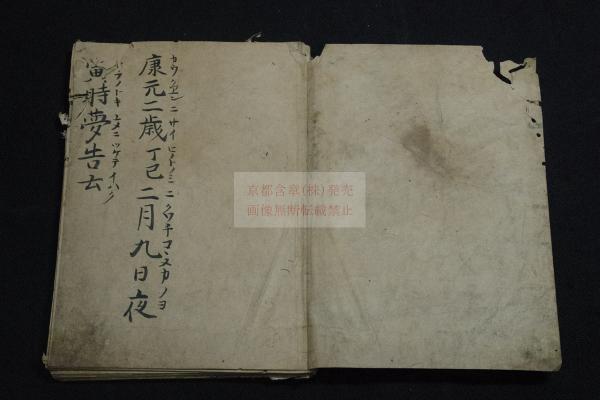 康元二歳丁巳二月九日夜
カウクエンニサイヒノトノミニクワチコヽヌカノヨ
寅時夢告云
トラノトキユメニツケテイハク
京都含章(株)発売
画像無断転載禁止